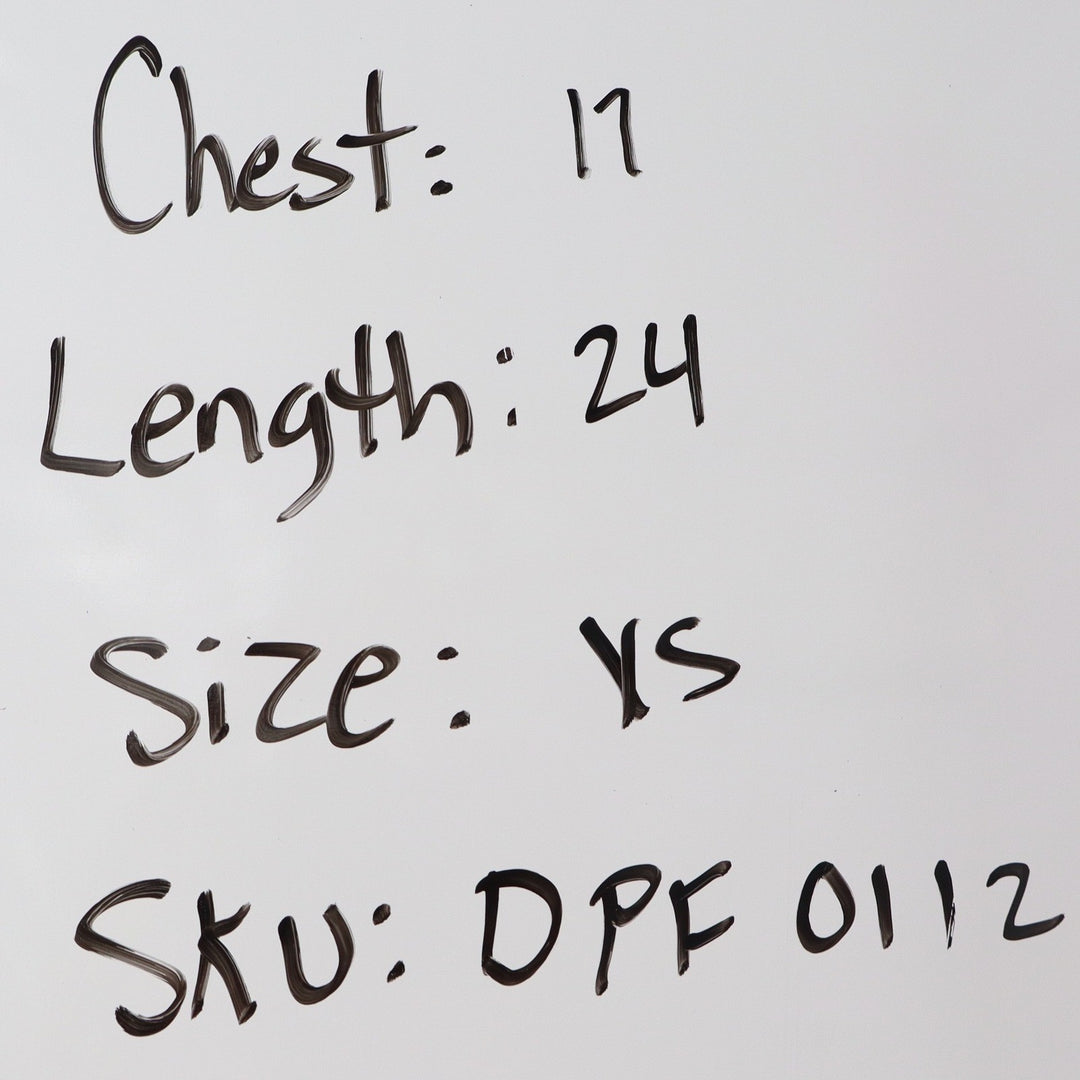 Chest: 17
Length: 24
Size: YS
SKU: DPF 0112